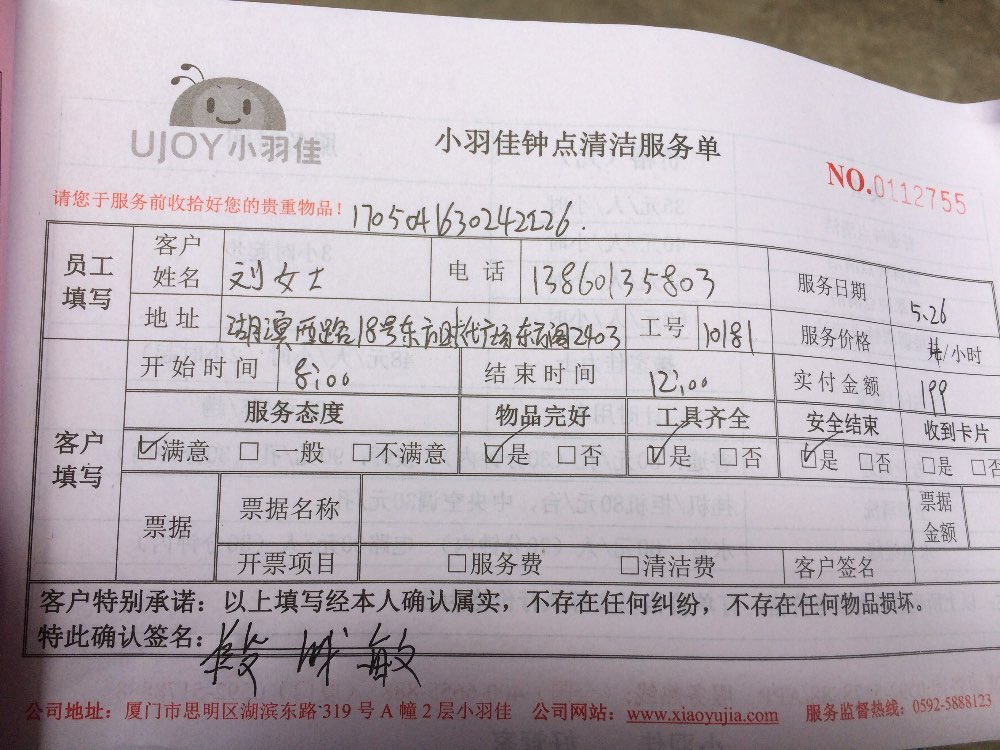 UJOY小羽佳
小羽佳钟点清洁服务单
NO.0112755
请您于服务前收拾好您的贵重物品！ 1705041630242226.
员工填写 客户姓名 刘女士 电话 13860135803 服务日期 5.26
地址 湖滨西路18号东方时代广场东方阁2403 工号 10181 服务价格 /小时
开始时间 8:00 结束时间 12:00 实付金额 199
客户填写 服务态度 物品完好 工具齐全 安全结束 收到卡片
☑满意 □一般 □不满意 ☑是 □否 ☑是 □否 ☑是 □否 □是 □否
票据 票据名称 票据金额
开票项目 □服务费 □清洁费 客户签名
客户特别承诺：以上填写经本人确认属实，不存在任何纠纷，不存在任何物品损坏。
特此确认签名：
公司地址：厦门市思明区湖滨东路319号A幢2层小羽佳 公司网站：www.xiaoyujia.com 服务监督热线：0592-5888123